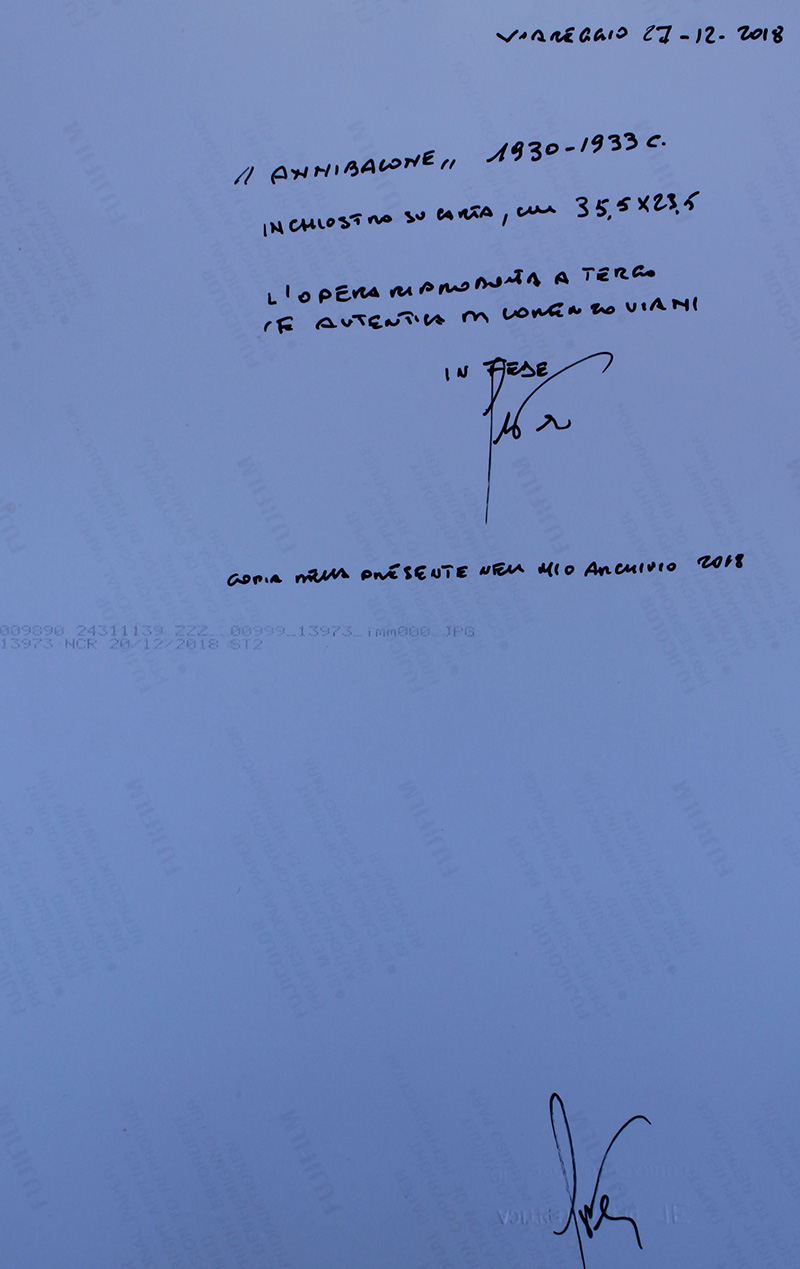 VIAREGGIO 27-12-2018
"ANNIBALONE" 1930-1933 c.
INCHIOSTRO SU CARTA, cm 35,5X23,5
L'OPERA RIPRODOTTA A TERGO
E' AUTENTICA DI LORENZO VIANI
IN FEDE
COPIA DELLA PRESENTE NELL MIO ARCHIVIO 2018
009890 24311139 ZZZ_ 00999_13973_imm000_JPG
13973 NCR 20/12/2018 ST2
FUJIFILM
FUJICOLOR